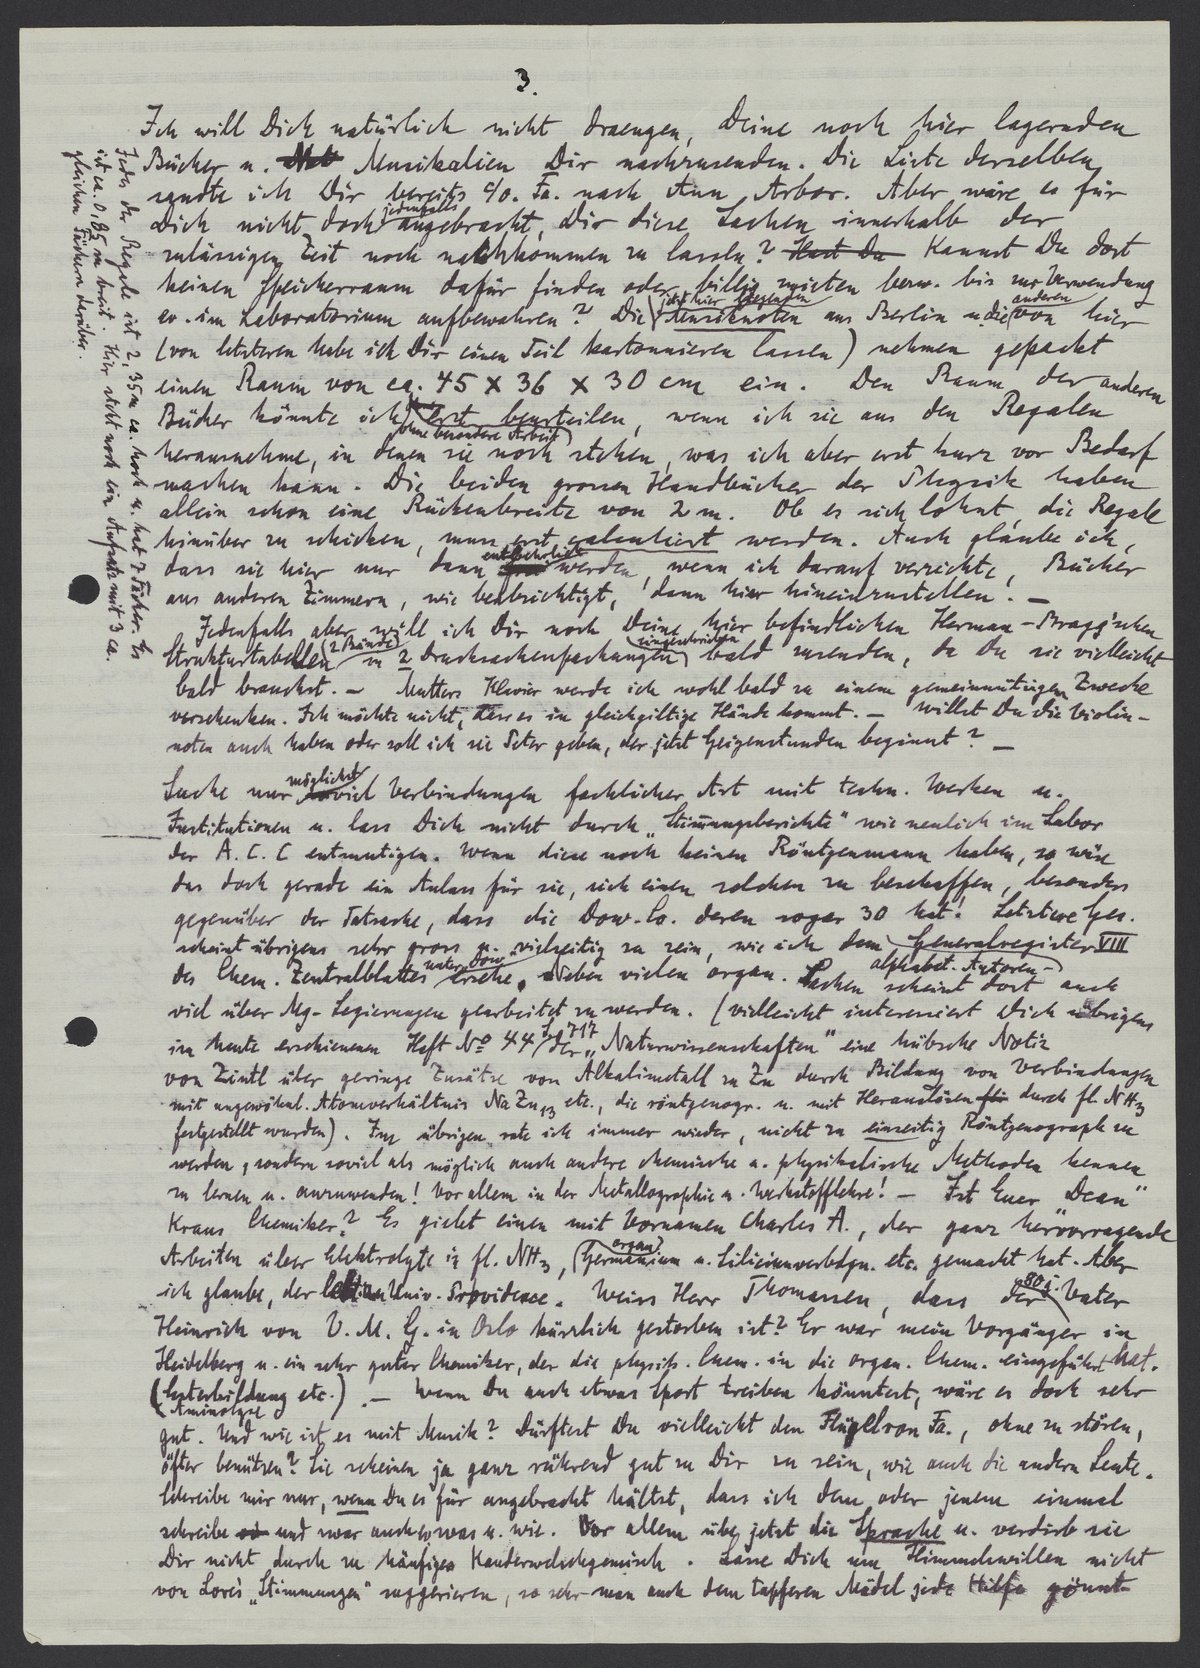 3.
Ich will Dich natürlich nicht draengen, Deine noch hier lagernden
Bücher u. Musikalien Dir nachzusenden. Die Liste derselben
sandte ich Dir bereits c/o. Fa. nach Ann Arbor. Aber wäre es für
Dich nicht doch jedenfalls angebracht, Dir diese Sachen innerhalb der
zulässigen Zeit noch nachkommen zu lassen? Hast Du Kannst Du dort
keinen Speicherraum dafür finden oder billig mieten bezw. bis zur Verwendung
ev. im Laboratorium aufbewahren? Die (jetzt hier liegenden) Musiknoten aus Berlin u. die anderen von hier
(von letzteren habe ich Dir einen Teil kartonnieren lassen) nehmen gepackt
einen Raum von ca. 45 x 36 x 30 cm ein. Den Raum der anderen
Bücher könnte ich (ohne besondere Arbeit) erst beurteilen, wenn ich sie aus den Regalen
herausnehme, in denen sie noch stehen, was ich aber erst kurz vor Bedarf
machen kann. Die beiden grossen Handbücher der Physik haben
allein schon eine Rückenbreite von 2 m. Ob es sich lohnt, die Regale
hinüber zu schicken, muss erst calculiert werden. Auch glaube ich,
dass sie hier nur dann entbehrlich werden, wenn ich darauf verzichte, Bücher
aus anderen Zimmern, wie beabsichtigt, dann hier hineinzustellen. —
Jedenfalls aber will ich Dir noch Deine hier befindlichen Herman-Bragg'schen
Strukturtabellen (2 Bände) in 2 Drucksachenpackungen (eingeschrieben) bald zusenden, da Du sie vielleicht
bald brauchst. — Mutters Klavier werde ich wohl bald zu einem gemeinnützigen Zwecke
verschenken. Ich möchte nicht, dass es in gleichgiltige Hände kommt. — Willst Du die Violin-
noten auch haben oder soll ich sie Peter geben, der jetzt Geigenstunden beginnt? —
Suche nur möglichst viel Verbindungen fachlicher Art mit techn. Werken u.
Institutionen u. lass Dich nicht durch „Stimmungsberichte" wie neulich im Labor
der A. C. C entmutigen. Wenn diese noch keinen Röntgenmann haben, so wäre
das doch gerade ein Anlass für sie, sich einen solchen zu beschaffen, besonders
gegenüber der Tatsache, dass die Dow. Co. deren sogar 30 hat! Letztere Ges.
scheint übrigens sehr gross u. vielseitig zu sein, wie ich dem Generalregister VIII
des Chem. Zentralblattes unter Dow (alphabet. Autoren-) ersehe. Neben vielen organ. Sachen scheint dort auch
viel über Mg-Legierungen gearbeitet zu werden. (Vielleicht interessiert Dich übrigens
im heute erschienenen Heft No 44 S. 717 der „Naturwissenschaften" eine hübsche Notiz
von Zintl über geringe Zusätze von Alkalimetall zu Zn durch Bildung von Verbindungen
mit ungewöhnl. Atomverhältnis NaZn13 etc., die röntgenogr. u. mit Herauslösen durch fl. NH3
festgestellt wurden). Im übrigen rate ich immer wieder, nicht zu einseitig Röntgenograph zu
werden, sondern soviel als möglich auch andere chemische u. physikalische Methoden kennen
zu lernen u. anzuwenden! Vor allem in der Metallographie u. Werkstofflehre! — Ist Euer „Dean"
Kraus Chemiker? Es giebt einen mit Vornamen Charles A., der ganz hervorragende
Arbeiten über Elektrolyte in fl. NH3, (organ.) Germanium u. Siliciumverbdgn. etc. gemacht hat. Aber
ich glaube, der Univ. Providence. Weiss Herr Thomassen, dass der 80 j. Vater
Heinrich von V. M. G. in Oslo kürzlich gestorben ist? Er war mein Vorgänger in
Heidelberg u. ein sehr guter Chemiker, der die physik. Chem. in die organ. Chem. eingeführt hat.
(Esterbildung etc.) (Aminolyse — Wenn Du auch etwas Sport treiben könntest, wäre es doch sehr
gut. Und wie ist es mit Musik? Dürftest Du vielleicht den Flügel von Fa., ohne zu stören,
öfter benützen? Sie scheinen ja ganz rührend gut zu Dir zu sein, wie auch die andern Leute.
Schreibe mir nur, wenn Du es für angebracht hältst, dass ich dem oder jenem einmal
schreibe und zwar auch was u. wie. Vor allem übe jetzt die Sprache u. verdirb sie
Dir nicht durch zu häufiges Kauderwelschgemisch. Lasse Dich um Himmelswillen nicht
von Lore's „Stimmungen" suggerieren, so sehr man auch dem tapferen Mädel jede Hilfe gönnt
Jedes der Regale ist 2,35 m ca. hoch u. hat 7 Fächer. Es
ist ca. 0,85 m breit. Hier steht noch ein Aufsatz mit 3 ca.
gleichen Fächern darüber.